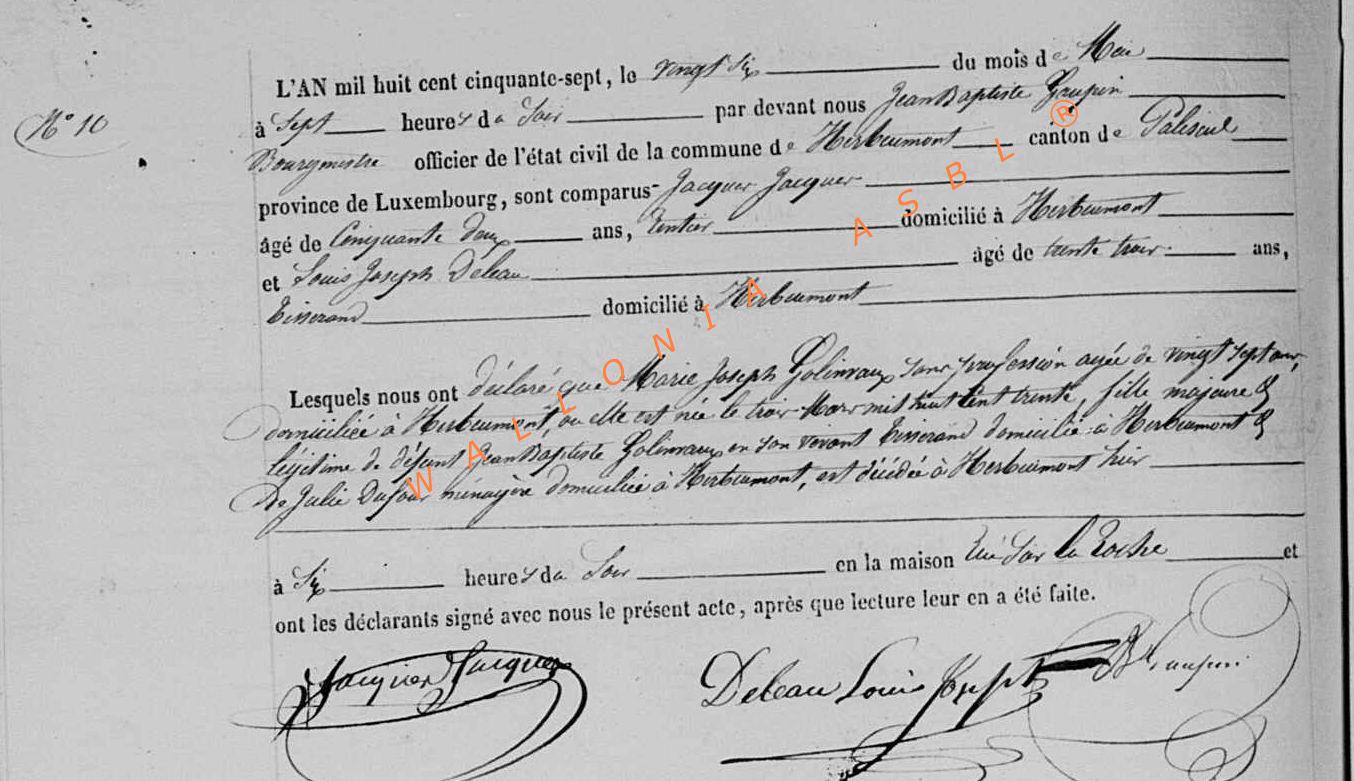 N° 10
L'AN mil huit cent cinquante-sept, le vingt Six du mois de Mai
à Sept heures du Soir par devant nous Jean Baptiste Gaupin
Bourgmestre officier de l'état civil de la commune de Herbeumont canton de Paliseul
province de Luxembourg, sont comparus Jacques Jacques
âgé de Cinquante deux ans, rentier domicilié à Herbeumont
et Louis Joseph Deleau âgé de trente trois ans,
Tisserand domicilié à Herbeumont
Lesquels nous ont déclaré que Marie Joseph Golinvaux sans profession agée de vingt sept ans,
domiciliée à Herbeumont, ou elle est née le trois Mars mil huit cent trente, fille majeure &
légitime de défunt Jean Baptiste Golinvaux en son vivant Tisserand domicilié à Herbeumont &
de Julie Dufour ménagère domiciliée à Herbeumont, est décédée à Herbeumont hier
à Six heures du Soir en la maison la Roche et
ont les déclarants signé avec nous le présent acte, après que lecture leur en a été faite.
Jacques Jacques Deleau Louis Joseph
WALLONIA ASBL ®